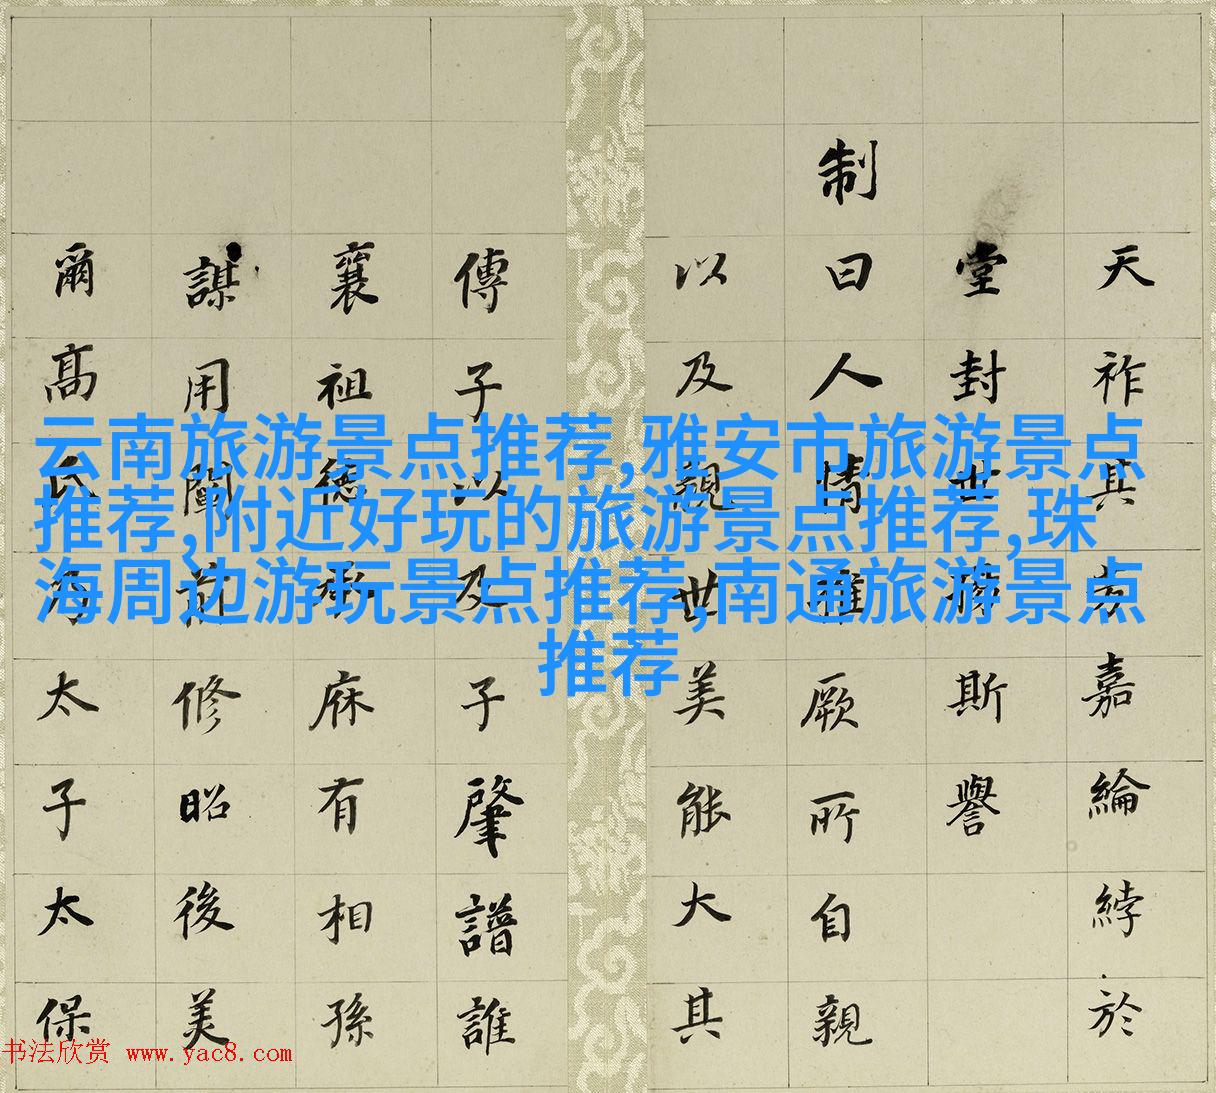 云南旅游景点推荐,雅安市旅游景点
推荐,附近好玩的旅游景点推荐,珠
海周边游玩景点推荐,南通旅游景点
推荐
天祚其嘉綸綍於
堂封世斯譽
制曰人情厥所自親
以及親世美能大其
傳子以及子肇譜誰
襄祖德庥有相孫
謀用闡修昭後美
爾高氏太子太保
书法欣赏 www.yac8.com